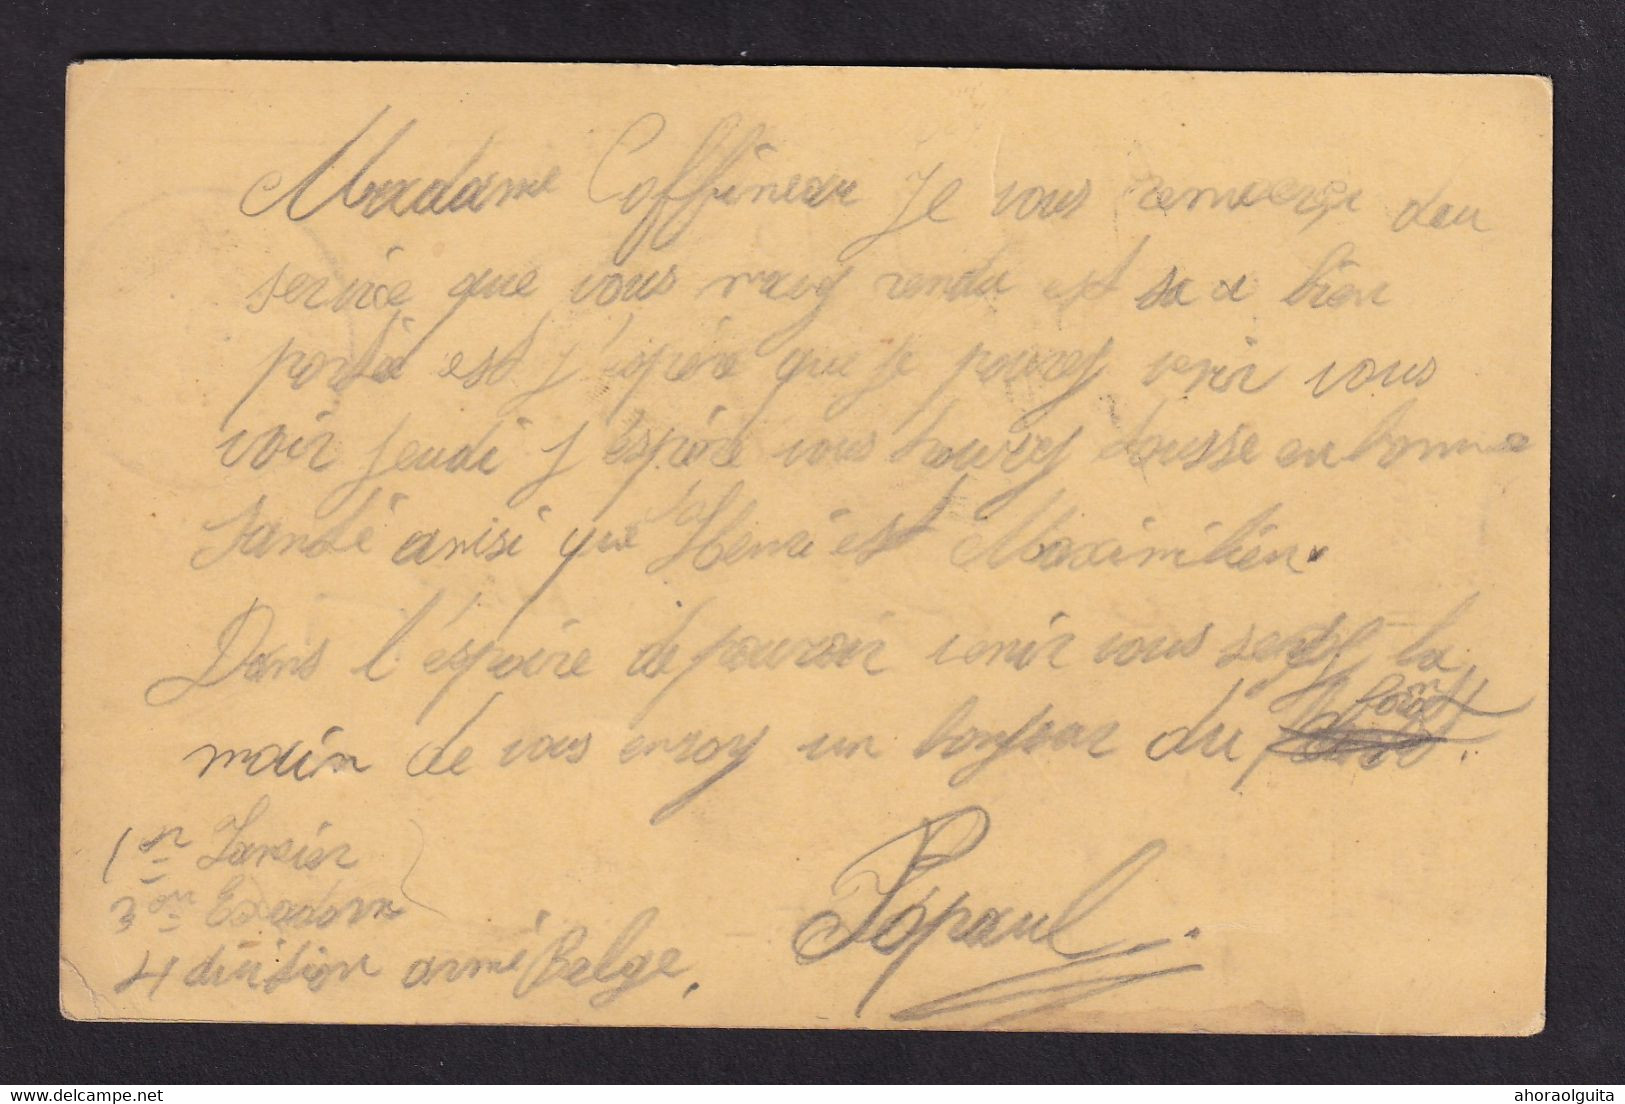 Madame Coffineau Je vous remerci deu
service que vous mavy rendu est sa a bien
porté est j'espére que je pourey venir vous
voir jeudi j'éspére vous trouvey tousse en bonne
Santé ansi que Henri est Maximilien.
Dans l'éspoire de pouvoir venir vous la
main de vous envoy un bonjour du
1er Lancier
3em Exadorn
4 division armé Belge.
Pópaul
ahoraolguita